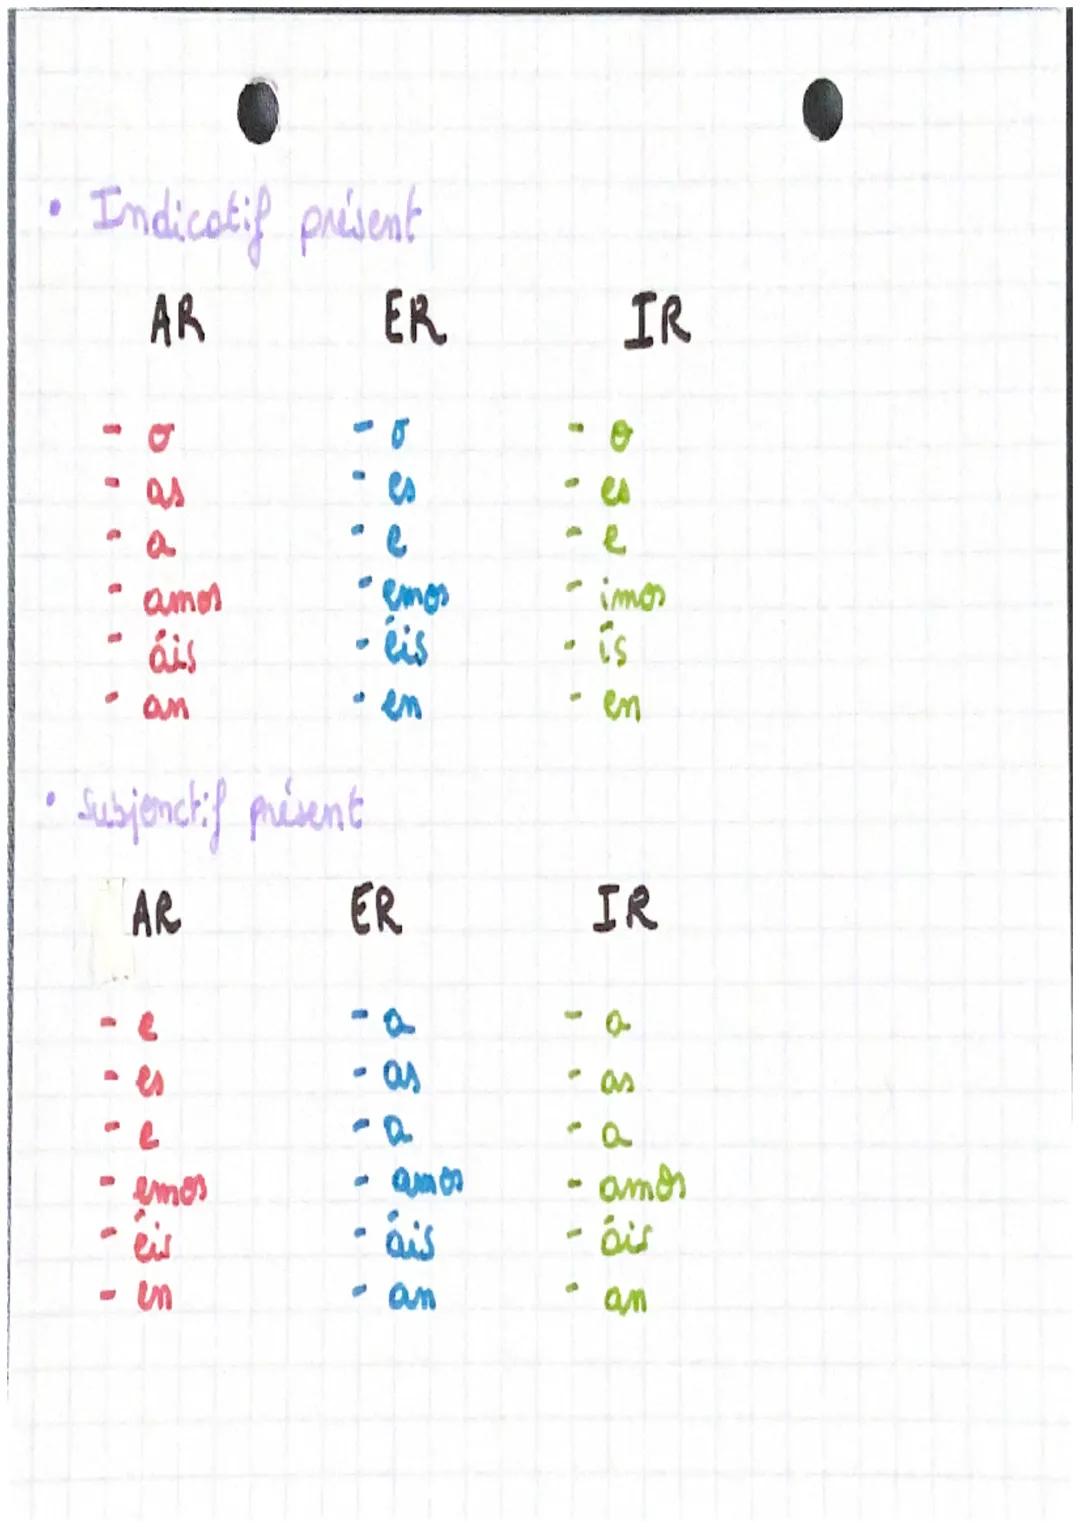 • Indicatif présent
AR ER IR
- o - o - o
- as - es - es
- a - e - e
- amos - emos - imos
- áis - éis - ís
- an - en - en
• Subjonctif présent
AR ER IR
- e - a - a
- es - as - as
- e - a - a
- emos - amos - amos
- éis - áis - áis
- en - an - an